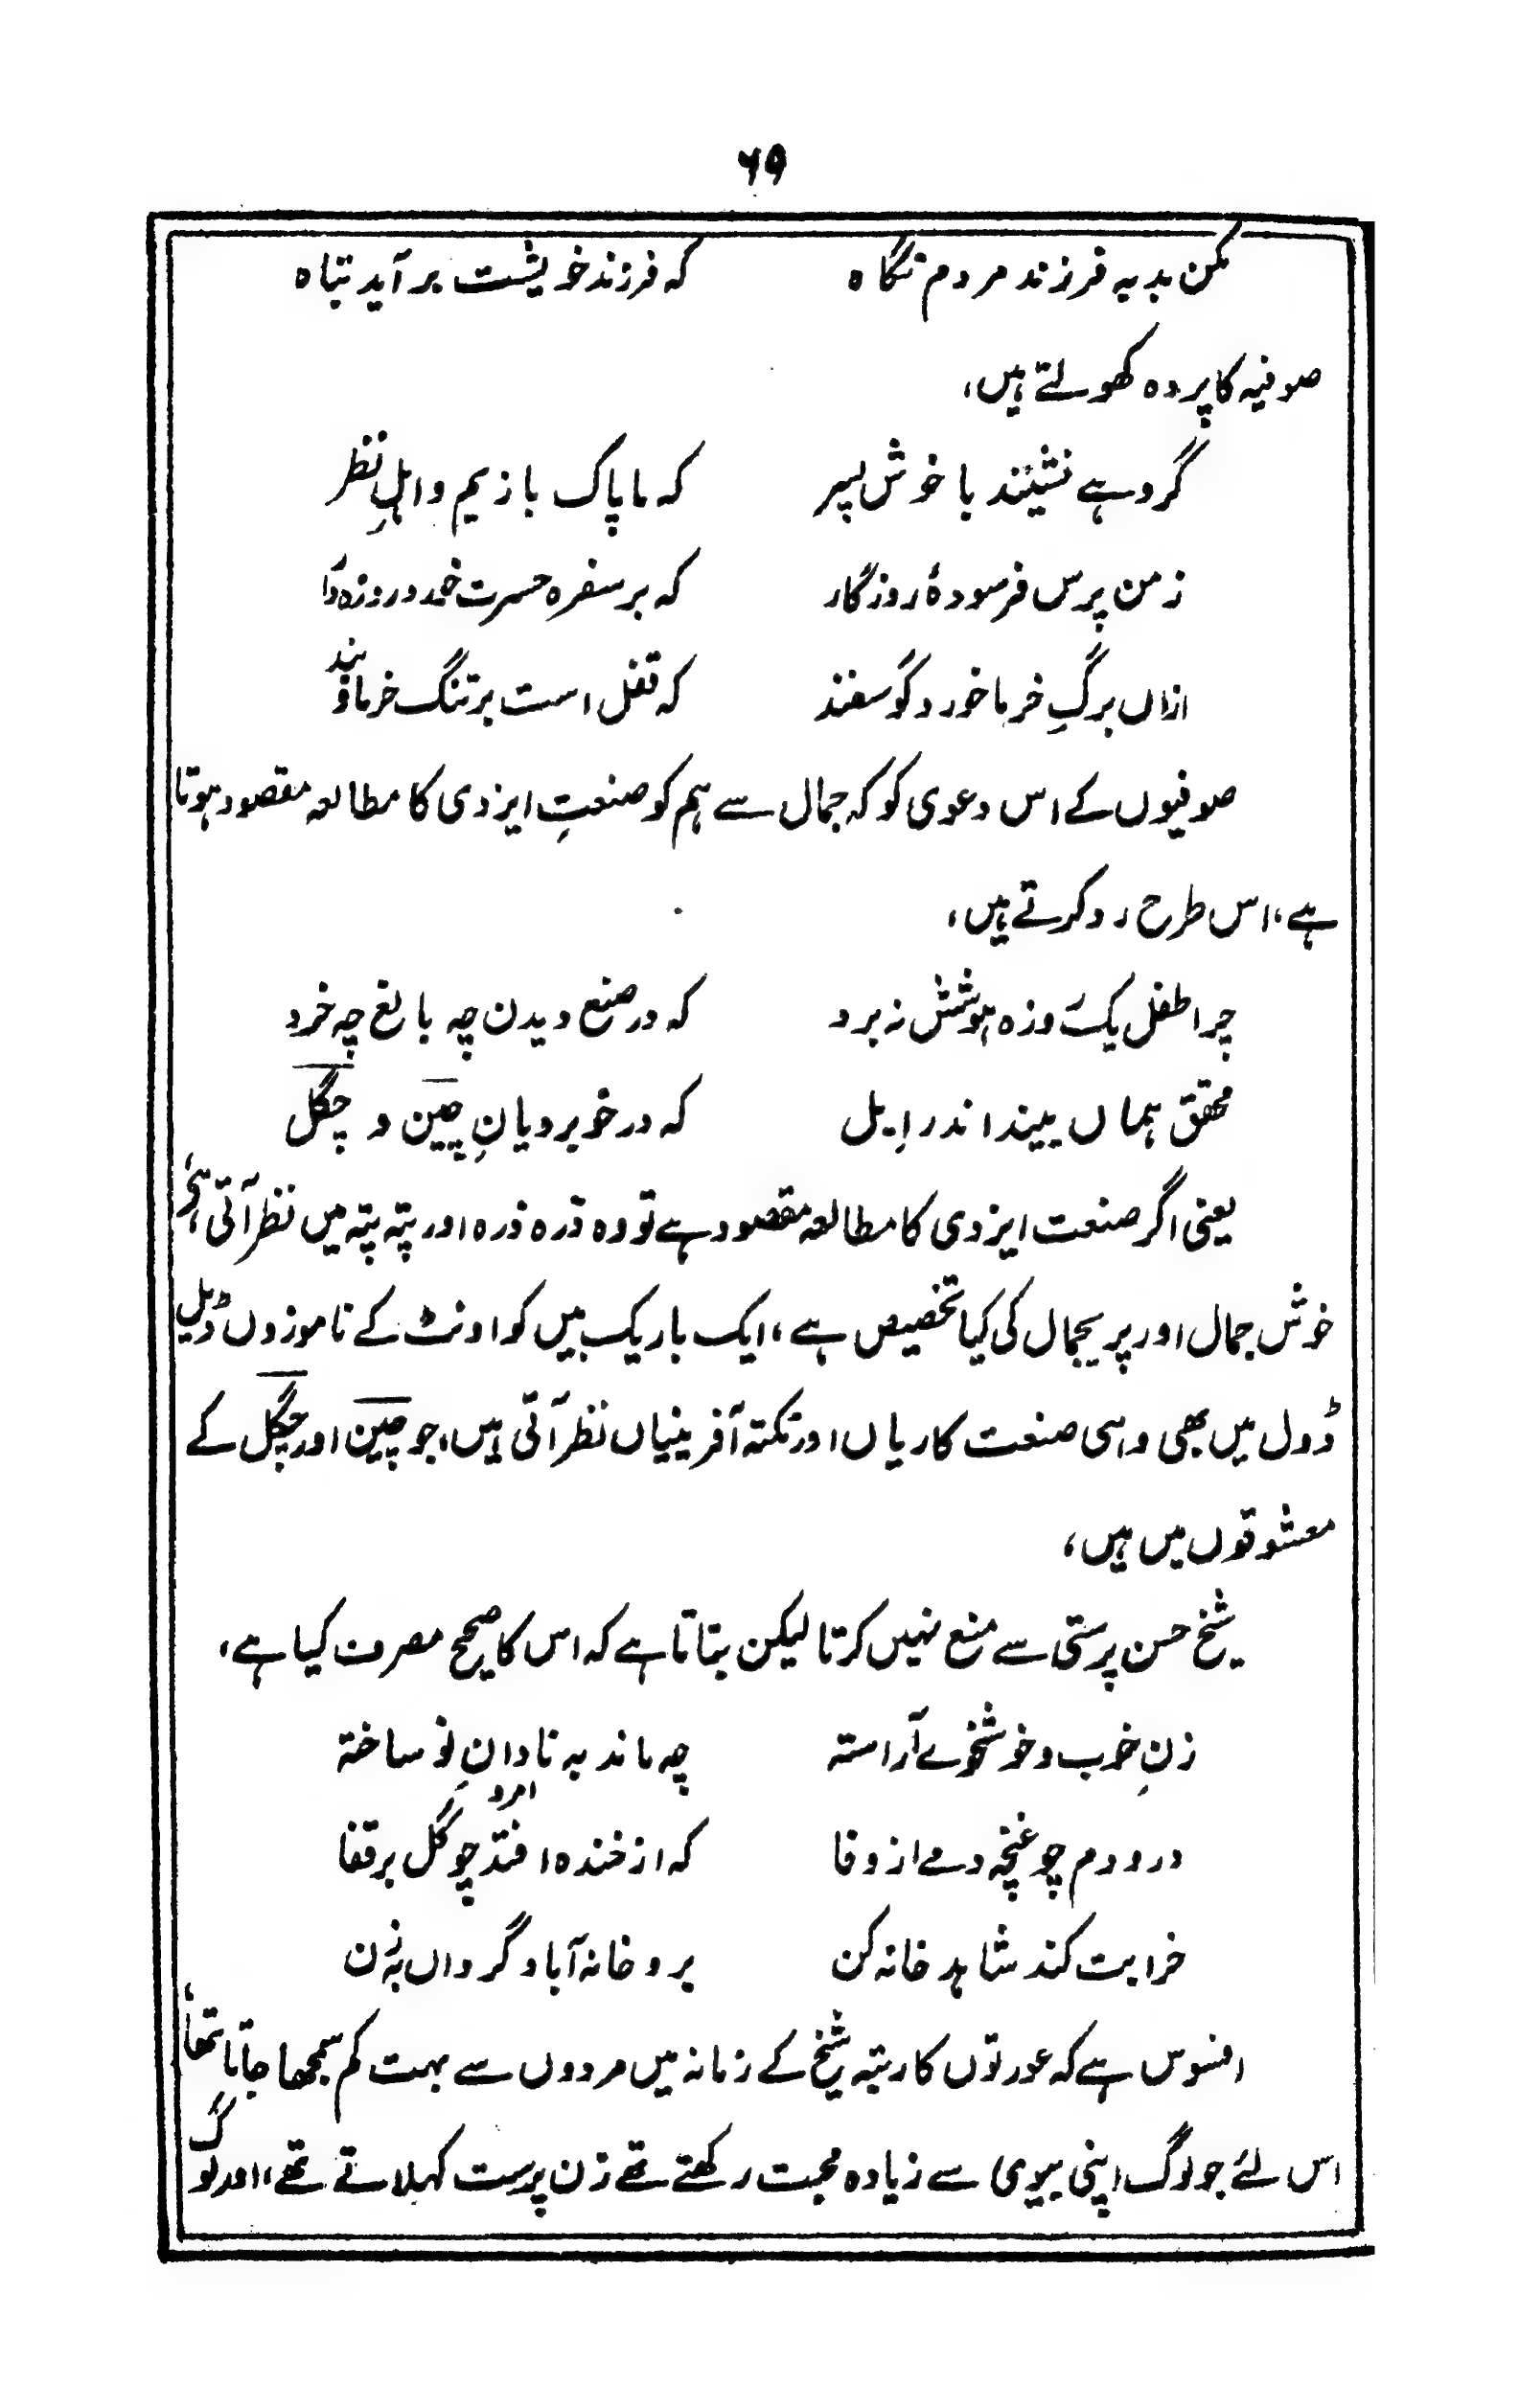 ۶۹
مکن بد بہ فرزند مردم نگاہ کہ فرزند خویشت برآید تباہ
صوفیہ کا پردہ کھولتے ہیں،
گروہے نشینند با خوش پسر کہ ما پاک بازیم و اہلِ نظر
زمن پرس فرسودۂ روزگار کہ بر سفرہ حسرت خورد روزہ دار
ازاں برگِ خرما خورد گوسفند کہ قفل است بر تنگ خرما و بند
صوفیوں کے اس دعوی کو کہ جمال سے ہم کو صنعتِ ایزدی کا مطالعہ مقصود ہوتا
ہے، اس طرح رد کرتے ہیں،
چرا طفل یک روزہ ہوشش نہ برد کہ در صنع دیدن چہ بالغ چہ خرد
محقق ہماں بیند اندر اِبل کہ در خوبرویانِ چین و چگل
یعنی اگر صنعت ایزدی کا مطالعہ مقصود ہے تو وہ ذرہ ذرہ اور پتہ پتہ میں نظر آتی ہے،
خوش جمال اور پریجمال کی کیا تخصیص ہے، ایک باریک بیں کو اونٹ کے ناموزوں ڈیل
ڈول میں بھی وہی صنعت کاریاں اور نکتہ آفرینیاں نظر آتی ہیں، جو چین اور چگل کے
معشوقوں میں ہیں،
شیخ حسن پرستی سے منع نہیں کرتا لیکن بتاتا ہے کہ اس کا صحیح مصرف کیا ہے،
زنِ خوب و خوشخوے آراستہ چہ ماند بہ نادانِ نوساختہ
در و دم چو غنچہ دمے از وفا کہ از خندہ افتد چو گل برقفا
خرابت کند شاہد خانہ کن برو خانہ آباد گرداں بہ زن
افسوس ہے کہ عورتوں کا رتبہ شیخ کے زمانہ میں مردوں سے بہت کم سمجھا جاتا تھا،
اس لئے جو لوگ اپنی بیوی سے زیادہ محبت رکھتے تھے زن پرست کہلاتے تھے، اور لوگ